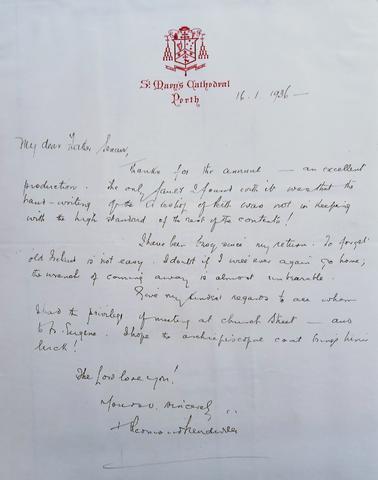 St. Mary's Cathedral
Perth
16.1.1936 —
My dear Father Senan,
Thanks for the annual — an excellent
production. The only fault I found with it was that the
hand-writing of the of Perth was not in keeping
with the high standard of the rest of the contents!
I have been busy since my return. To forget
old Ireland is not easy. I doubt if I will ever again go home;
the wrench of coming away is almost unbearable.
Give my kindest regards to all whom
I had the privilege of meeting at Church Street — and
to Fr. Eugene. I hope the archiepiscopal coat brings him
luck!
The Lord love you!
Yours v. sincerely